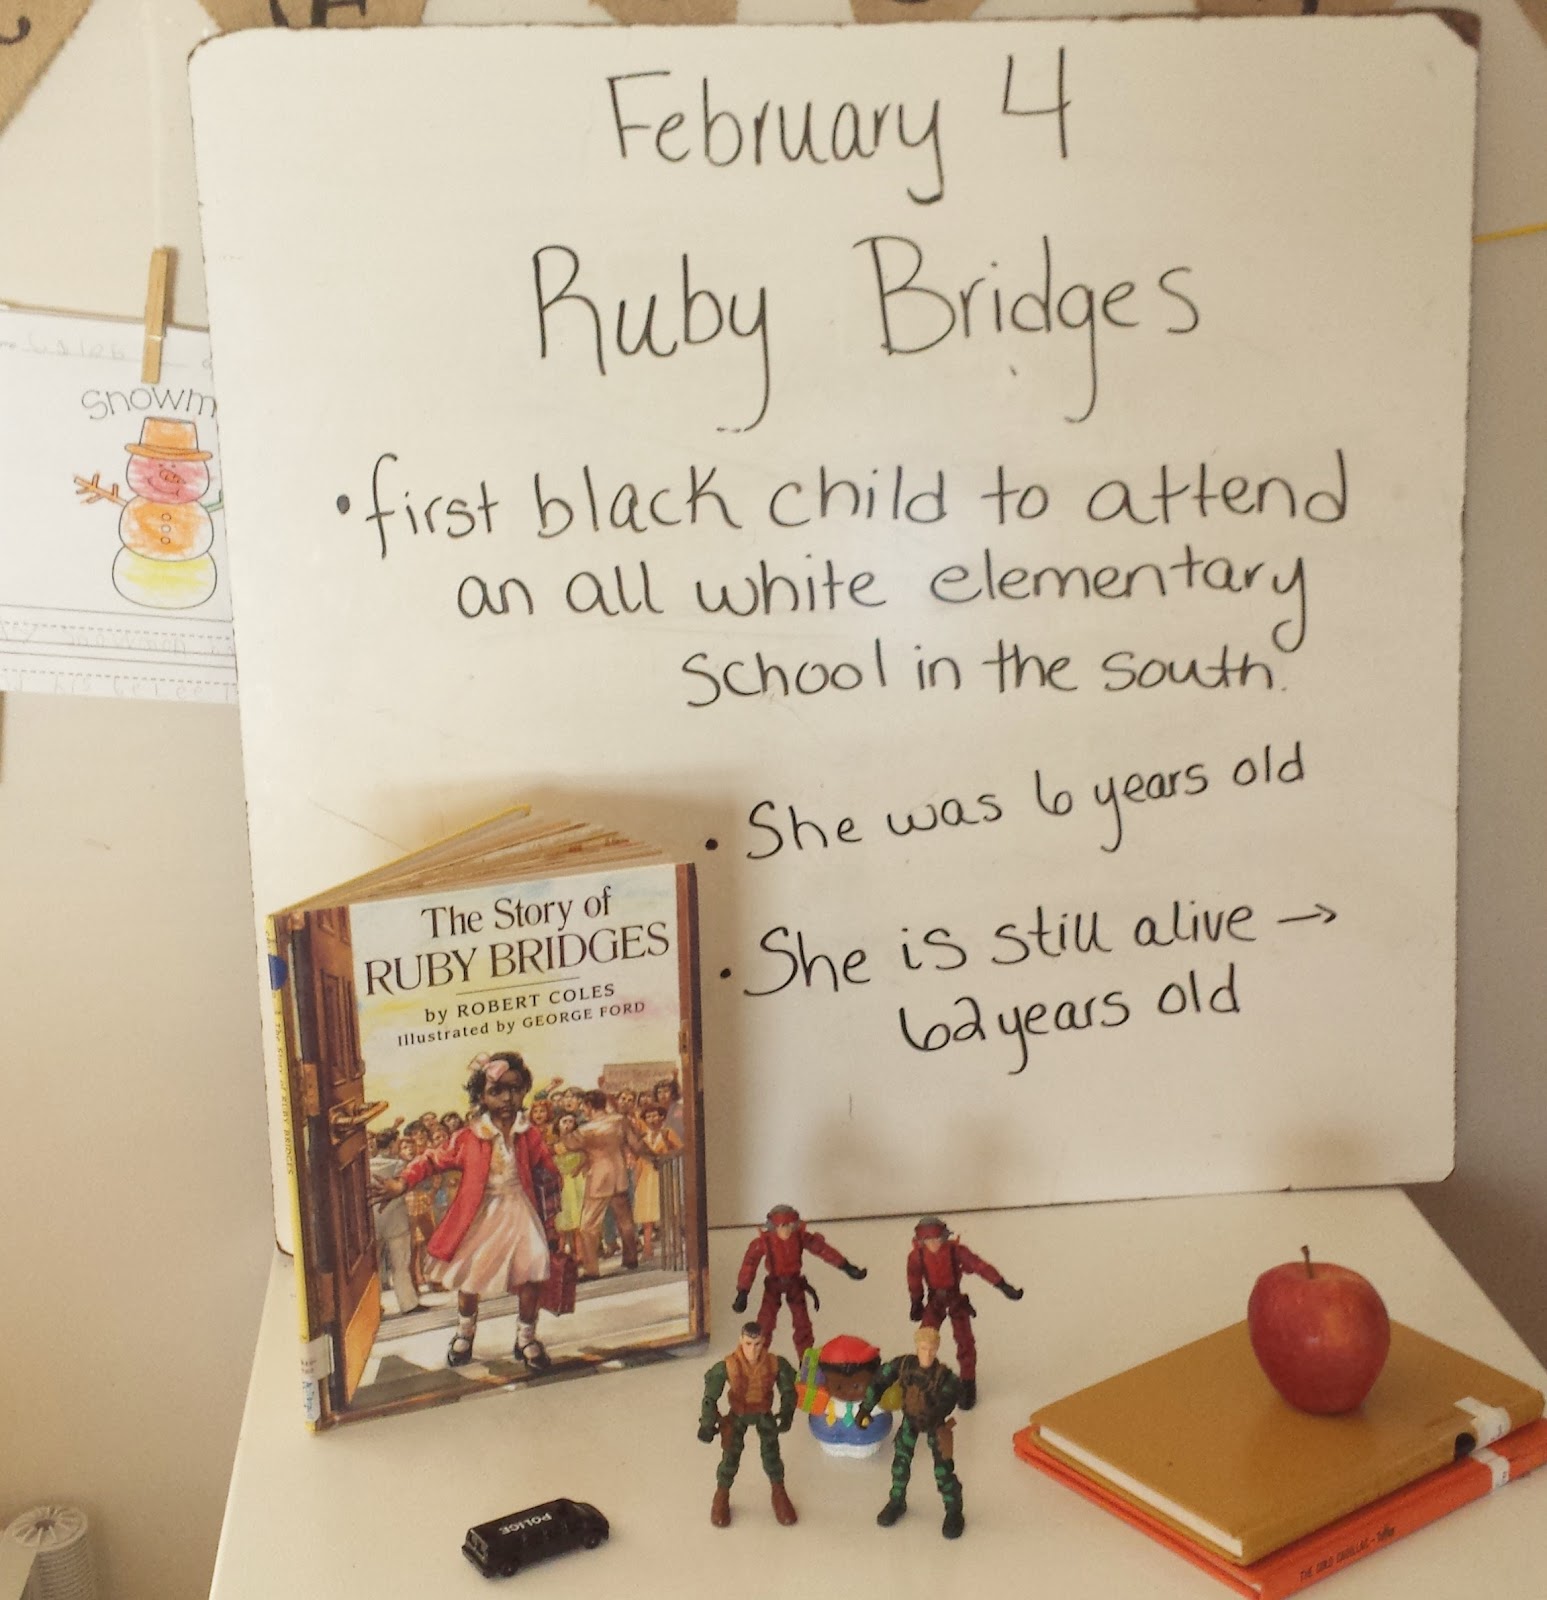 February 4
Ruby Bridges
• first black child to attend
an all white elementary
school in the south.
• She was 6 years old
• She is still alive →
62 years old
Snowm
The Story of
RUBY BRIDGES
by ROBERT COLES
Illustrated by GEORGE FORD
The Story of RUBY BRIDGES
POLICE
THE GOLD CADILLAC